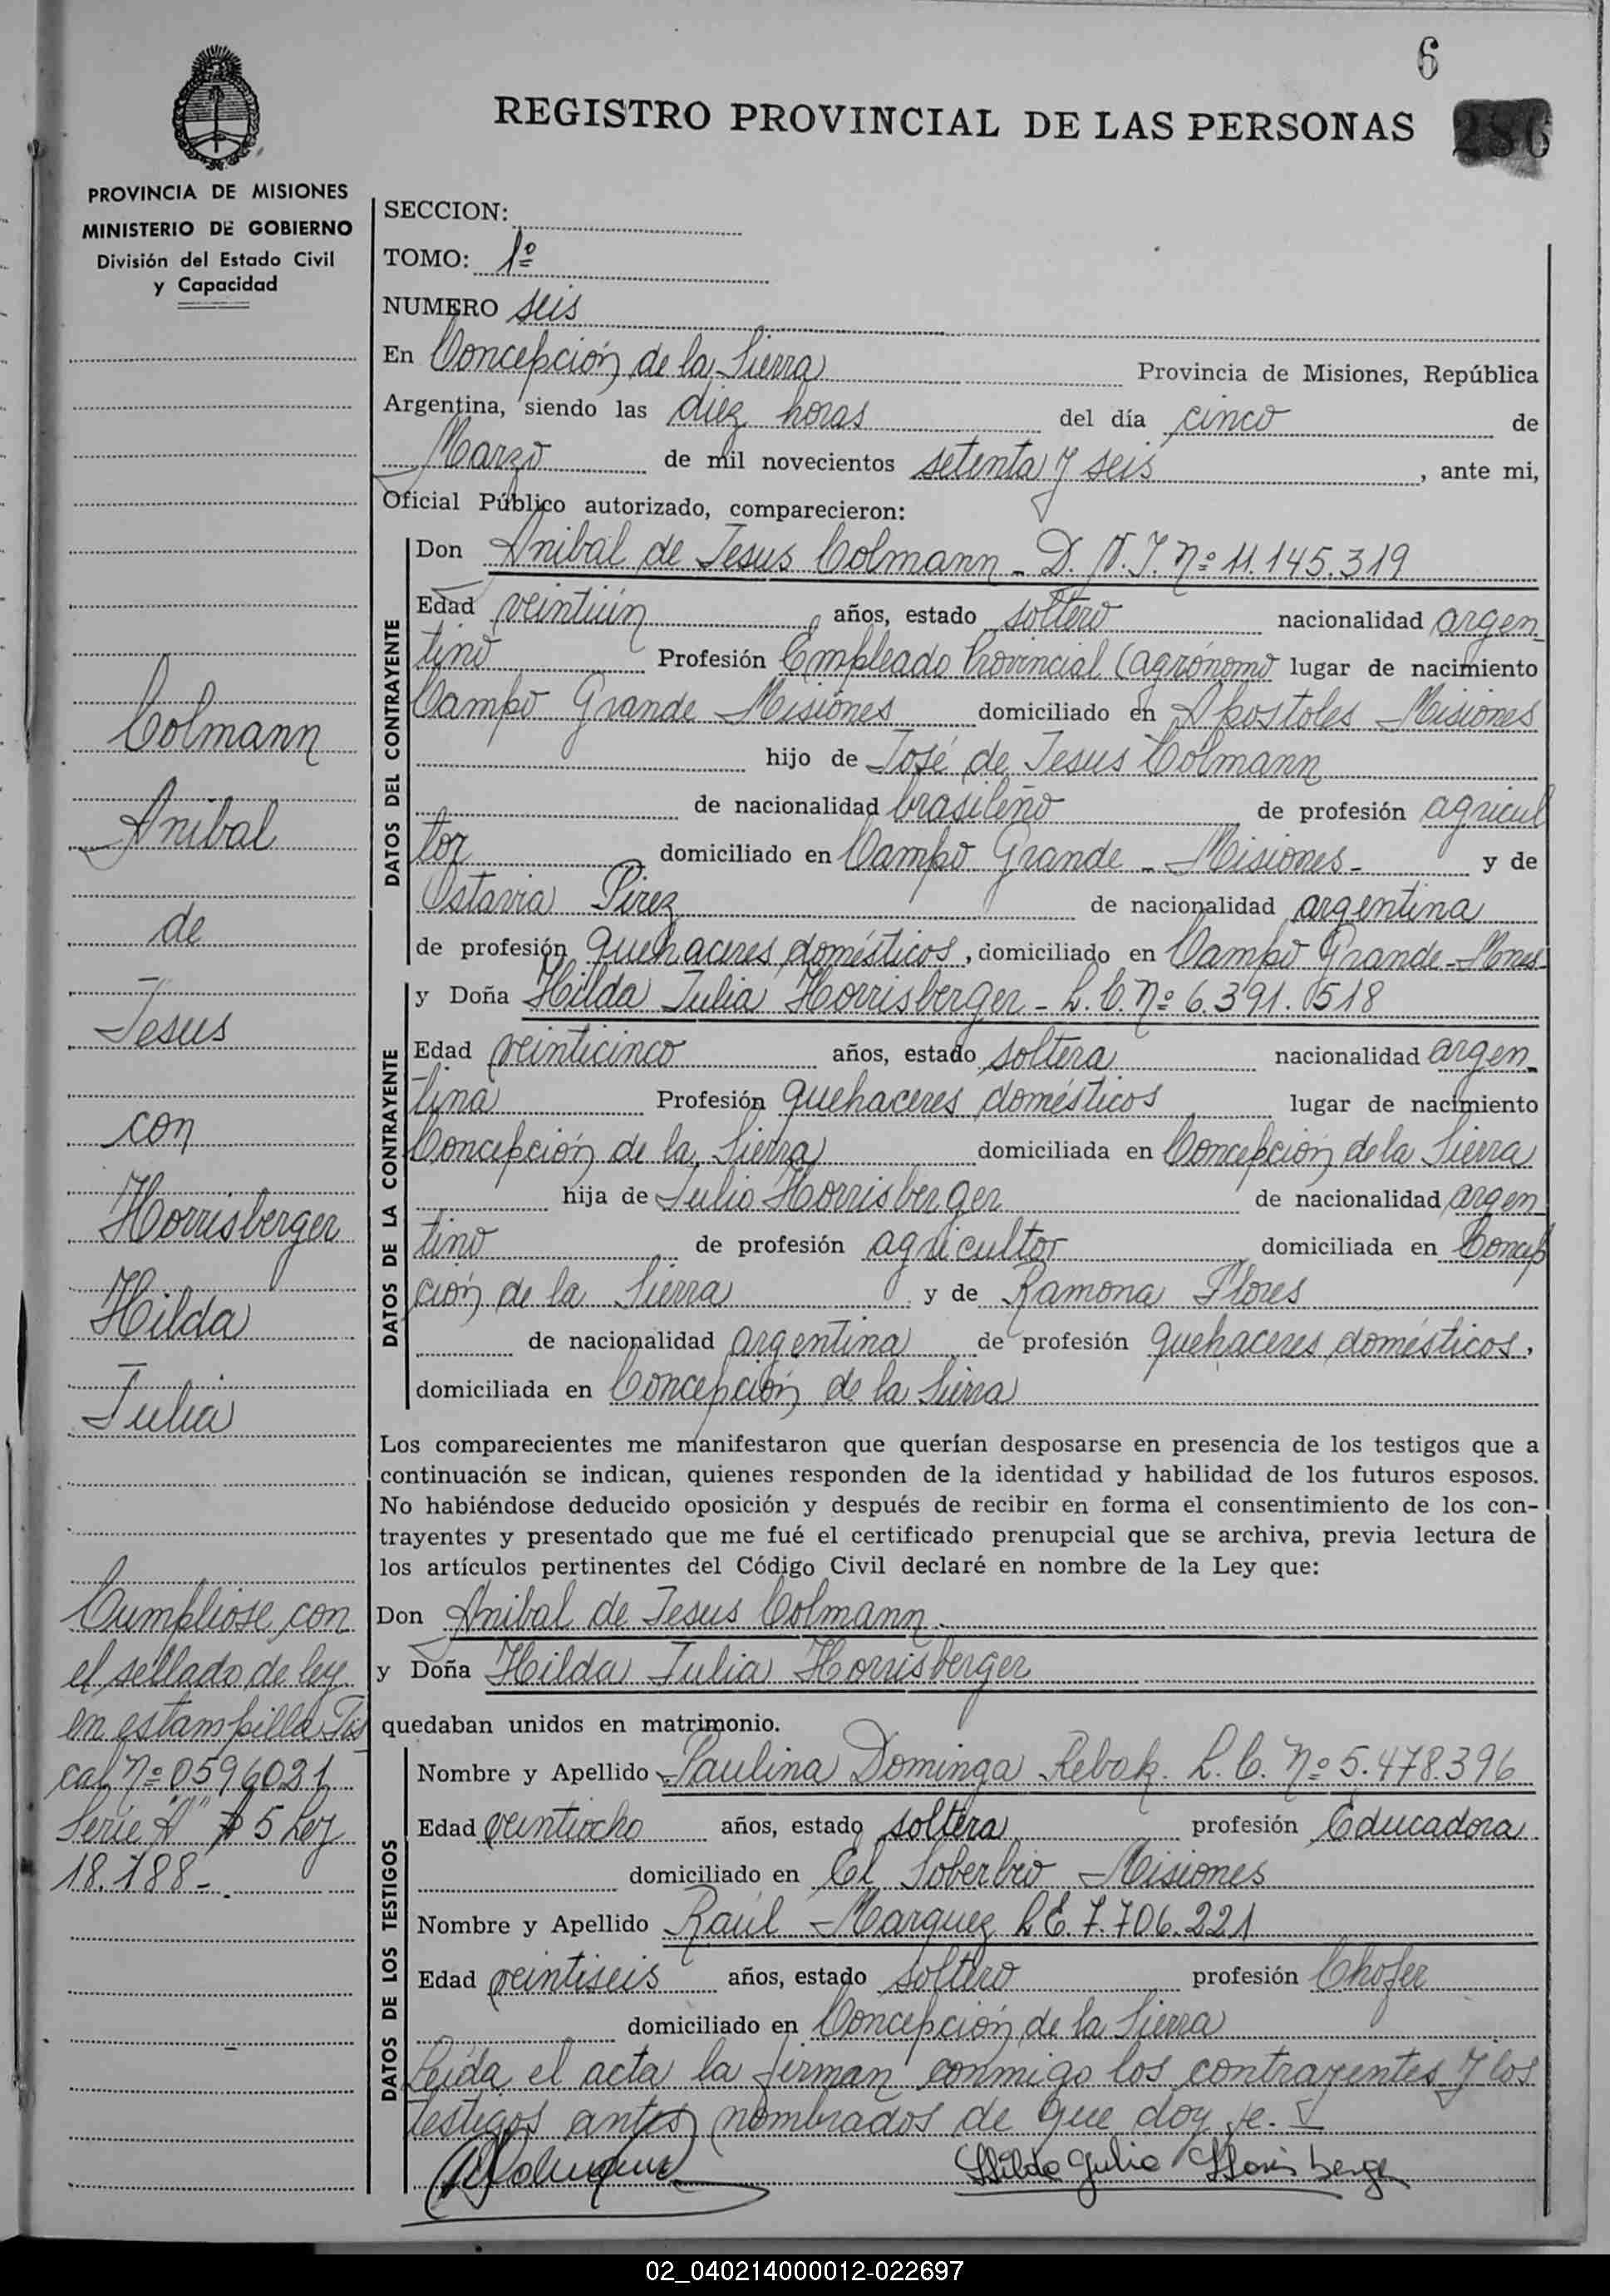 6
REGISTRO PROVINCIAL DE LAS PERSONAS
286
PROVINCIA DE MISIONES
MINISTERIO DE GOBIERNO
División del Estado Civil
y Capacidad
SECCION:
TOMO: 1º
NUMERO seis
En Concepción de la Sierra Provincia de Misiones, República
Argentina, siendo las diez horas del día cinco de
Marzo de mil novecientos setenta y seis, ante mi,
Oficial Público autorizado, comparecieron:
DATOS DEL CONTRAYENTE
Don Anibal de Jesus Colmann - D.N.I. Nº 11.145.319
Edad veintiún años, estado soltero nacionalidad argen
tino Profesión Empleado Provincial (agrónomo lugar de nacimiento
Campo Grande Misiones domiciliado en Apostoles Misiones
hijo de José de Jesus Colmann
de nacionalidad brasileño de profesión agricul
tor domiciliado en Campo Grande - Misiones - y de
Ostavia Pirez de nacionalidad argentina
de profesión quehaceres domésticos, domiciliado en Campo Grande - Mnes
DATOS DE LA CONTRAYENTE
y Doña Hilda Julia Horrisberger - L.C. Nº 6.391.518
Edad veinticinco años, estado soltera nacionalidad argen
tina Profesión quehaceres domésticos lugar de nacimiento
Concepción de la Sierra domiciliada en Concepción de la Sierra
hija de Julio Horrisberger de nacionalidad argen
tino de profesión agricultor domiciliada en Concep
ción de la Sierra y de Ramona Flores
de nacionalidad argentina de profesión quehaceres domésticos,
domiciliada en Concepción de la Sierra
Los comparecientes me manifestaron que querían desposarse en presencia de los testigos que a
continuación se indican, quienes responden de la identidad y habilidad de los futuros esposos.
No habiéndose deducido oposición y después de recibir en forma el consentimiento de los con-
trayentes y presentado que me fué el certificado prenupcial que se archiva, previa lectura de
los artículos pertinentes del Código Civil declaré en nombre de la Ley que:
Don Anibal de Jesus Colmann
y Doña Hilda Julia Horrisberger
quedaban unidos en matrimonio.
DATOS DE LOS TESTIGOS
Nombre y Apellido Paulina Dominga Rebak. L.C. Nº 5.478.396
Edad veintiocho años, estado soltera profesión Educadora
domiciliado en El Soberbio Misiones
Nombre y Apellido Raúl Marquez L.E. 7.706.221
Edad veintiseis años, estado soltero profesión Chofer
domiciliado en Concepción de la Sierra
Leída el acta la firman conmigo los contrayentes y los
testigos antes nombrados de que doy fe.
Hilda Julia Horrisberger
Colmann
Anibal
de
Jesus
con
Horrisberger
Hilda
Julia
Cumpliose con
el sellado de ley
en estampilla Fis
cal Nº 0596021
Serie "A" $ 5 Ley
18.188 -
02_040214000012-022697